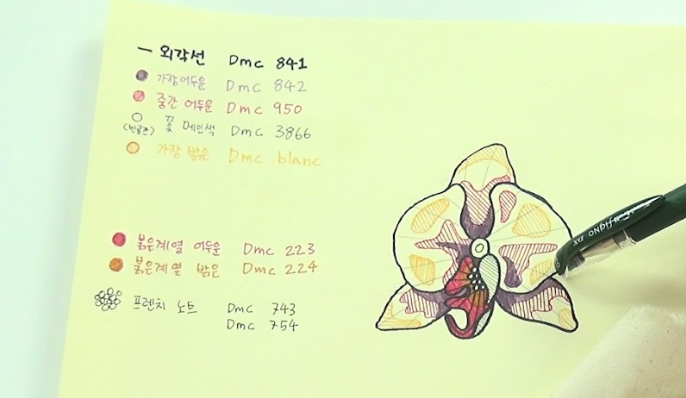 — 외각선 Dmc 841
가장어두운 Dmc 842
중간 어두운 Dmc 950
(빈공간) 꽃 메인색 Dmc 3866
가장 밝은 Dmc blanc
붉은계열 어두운 Dmc 223
붉은계열 밝은 Dmc 224
프렌치 노트 Dmc 743
Dmc 754